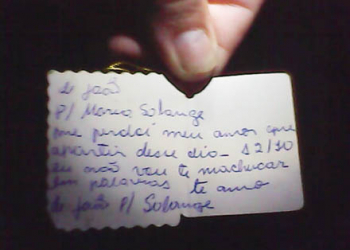 de João
P/ Maria Solange
me perdoi meu amor que
apartir desse dia_ 12/10
eu não vou te machucar
com palavras te amo
de João P/ Solange